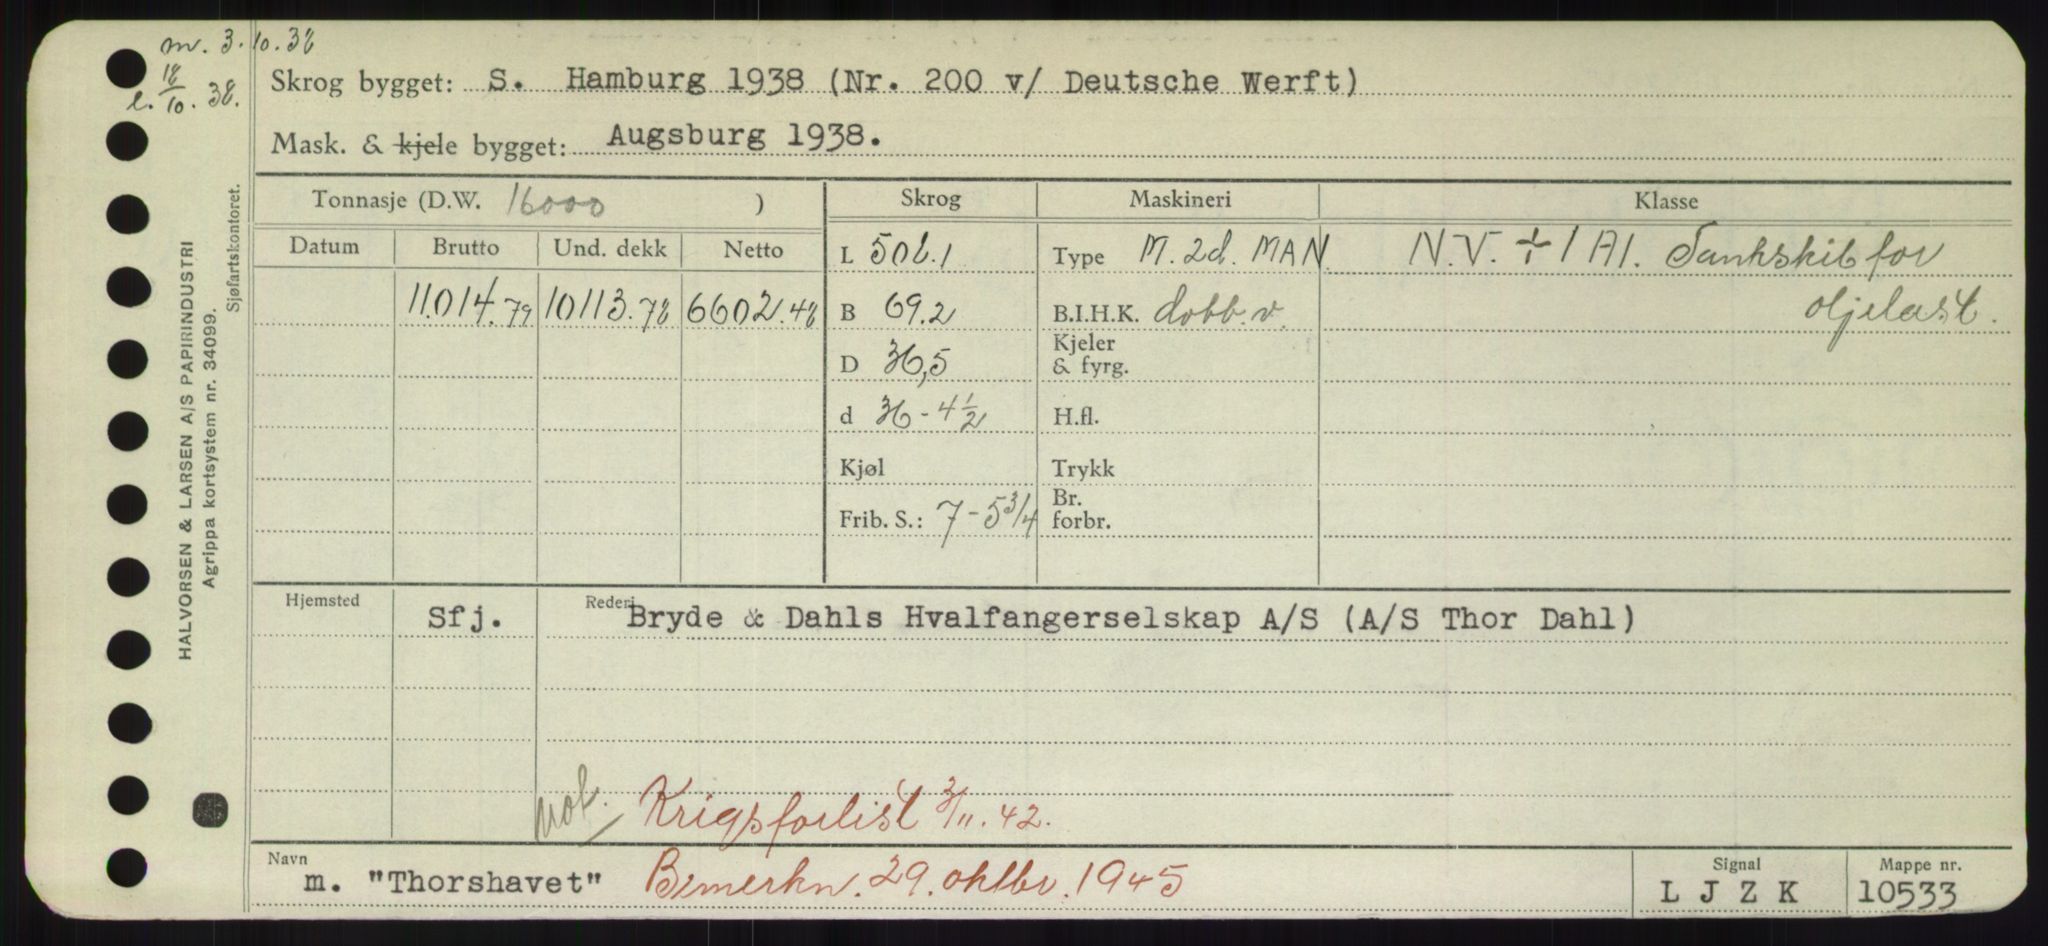 m. 3.10.38
l. 18/10. 38.
Skrog bygget: S. Hamburg 1938 (Nr. 200 v/ Deutsche Werft)
Mask. & kjele bygget: Augsburg 1938.
Tonnasje (D.W. 16000 )
Skrog
Maskineri
Klasse
Datum
Brutto
Und. dekk
Netto
11.014.79
10113.78
6602.48
L 502.1
B 69.2
D 36,5
d 36-4½
Kjøl
Frib. S.: 7-5¾
Type M. 2d. MAN.
B.I.H.K. dobb. v.
Kjeler
& fyrg.
H.fl.
Trykk
Br.
forbr.
N.V. ÷ 1 A1. Tankskib for
oljelast.
Hjemsted
Sfj.
Rederi
Bryde & Dahls Hvalfangerselskap A/S (A/S Thor Dahl)
not.
Krigsforlist 3/11. 42.
Navn
m. "Thorshavet"
Bemerkn. 29. oktbr. 1945
Signal
L J Z K
Mappe nr.
10533
HALVORSEN & LARSEN A/S PAPIRINDUSTRI
Agrippa kortsystem nr. 34099.
Sjøfartskontoret.